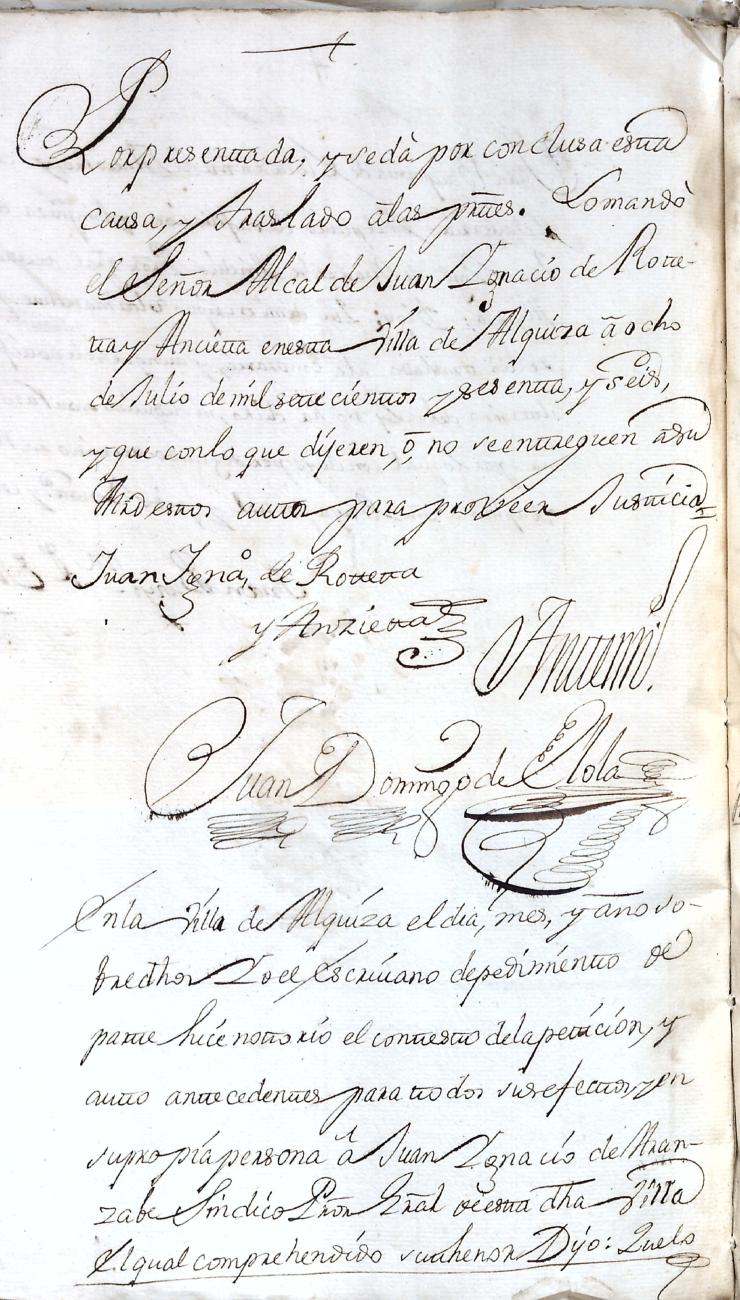 Por presenttada, y se dà por conclusa estta
causa, y traslado alas prttes. Lo mandò
el Señor Alcalde Juan Ygnacio de Rotte-
tta y Ancietta en estta Villa de Alquiza à ocho
de Julio de mil sette cienttos y sesentta, y seis,
y que con lo que dijeren, ò no se entreguen a su
Mrd esttos auttos para proveer Justticia
Juan Igno. de Rottetta
y Anzietta
Antemi.
Juan Domingo de Elola
En la Villa de Alquiza el dia, mes, y año so-
bredhos Yo el Escrivano de pedimientto de
partte hice nottorio el conttestto dela peticion, y
autto anttecedenttes para ttodos sus efecttos, y en
su propia persona à Juan Ygnacio de Aran-
zabe Sindico Pror. Gral de estta dha Villa
El qual comprehendido su thenor Dijo: Que lo